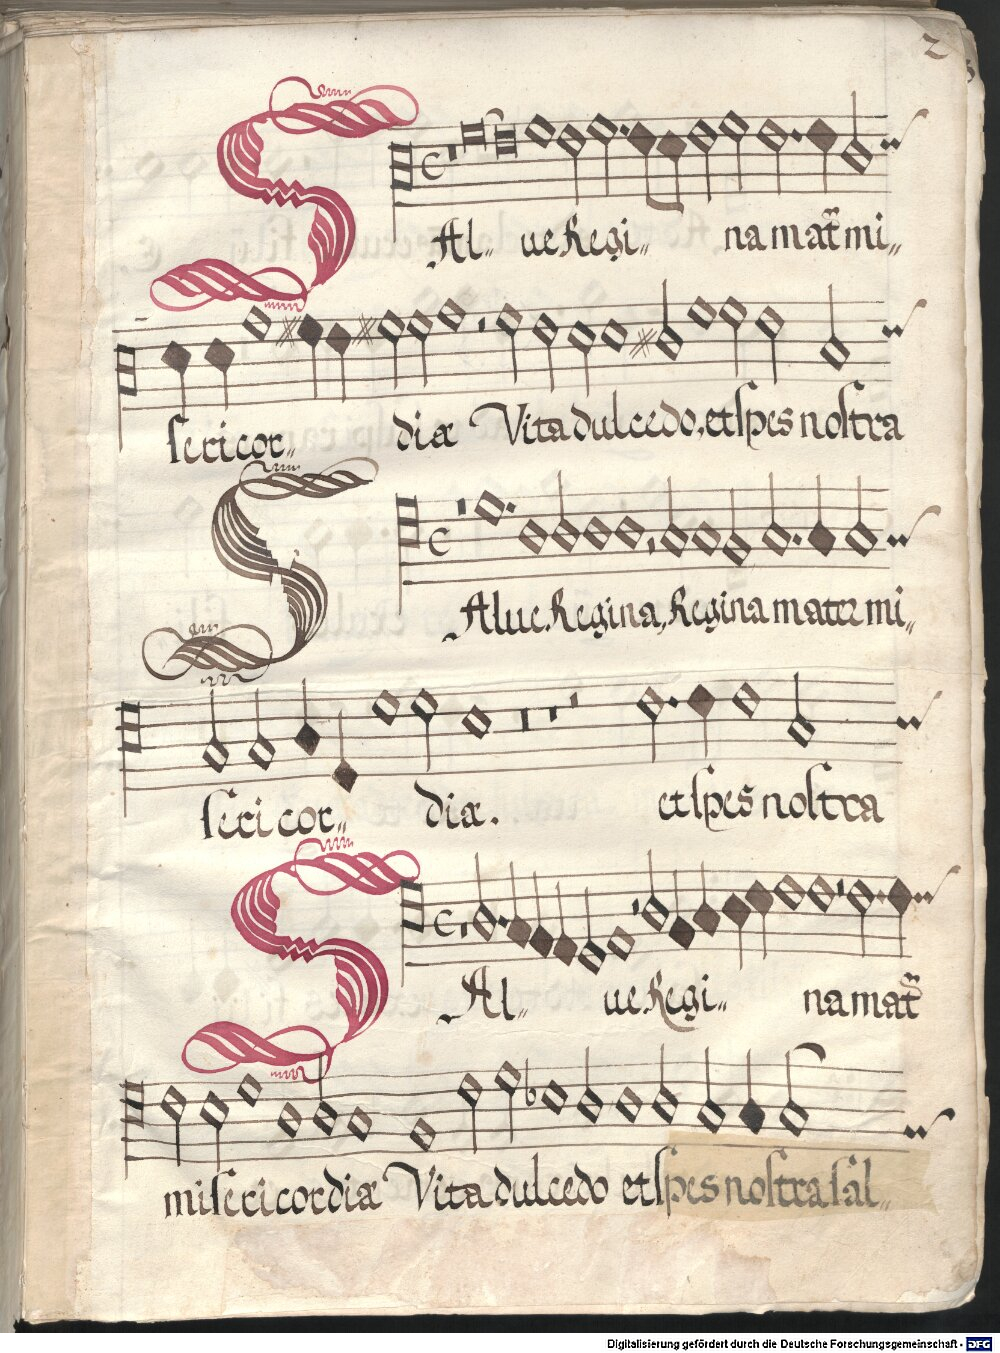 2
SAl„ ue Regi„ na mat̄r mi„
sericor„ diæ Vita dulcedo, et spes nostra
SAlue. Regina, Regina mater mi„
sericor„ diæ. et spes nostra
SAl„ ue Regi„ na mat̄r
misericordiæ Vita dulcedo et spes nostra sal„
Digitalisierung gefördert durch die Deutsche Forschungsgemeinschaft - DFG